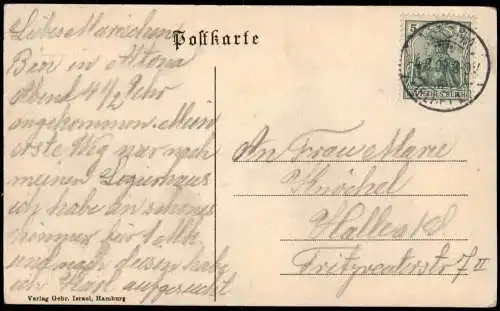 Postkarte
Liebes Mariechen
Bin in Altona
Abend 4 1/2 Uhr
angekommen. Mein
erste Weg war nach
meinen Logierhaus
ich habe ein schönes
Zimmer für
und nach diesen habe
ich Karl aufgesucht
An Frau Marie
Knöchel
Halle a/S.
Fritzreuterstr 7 II
5
Verlag Gebr. Israel, Hamburg